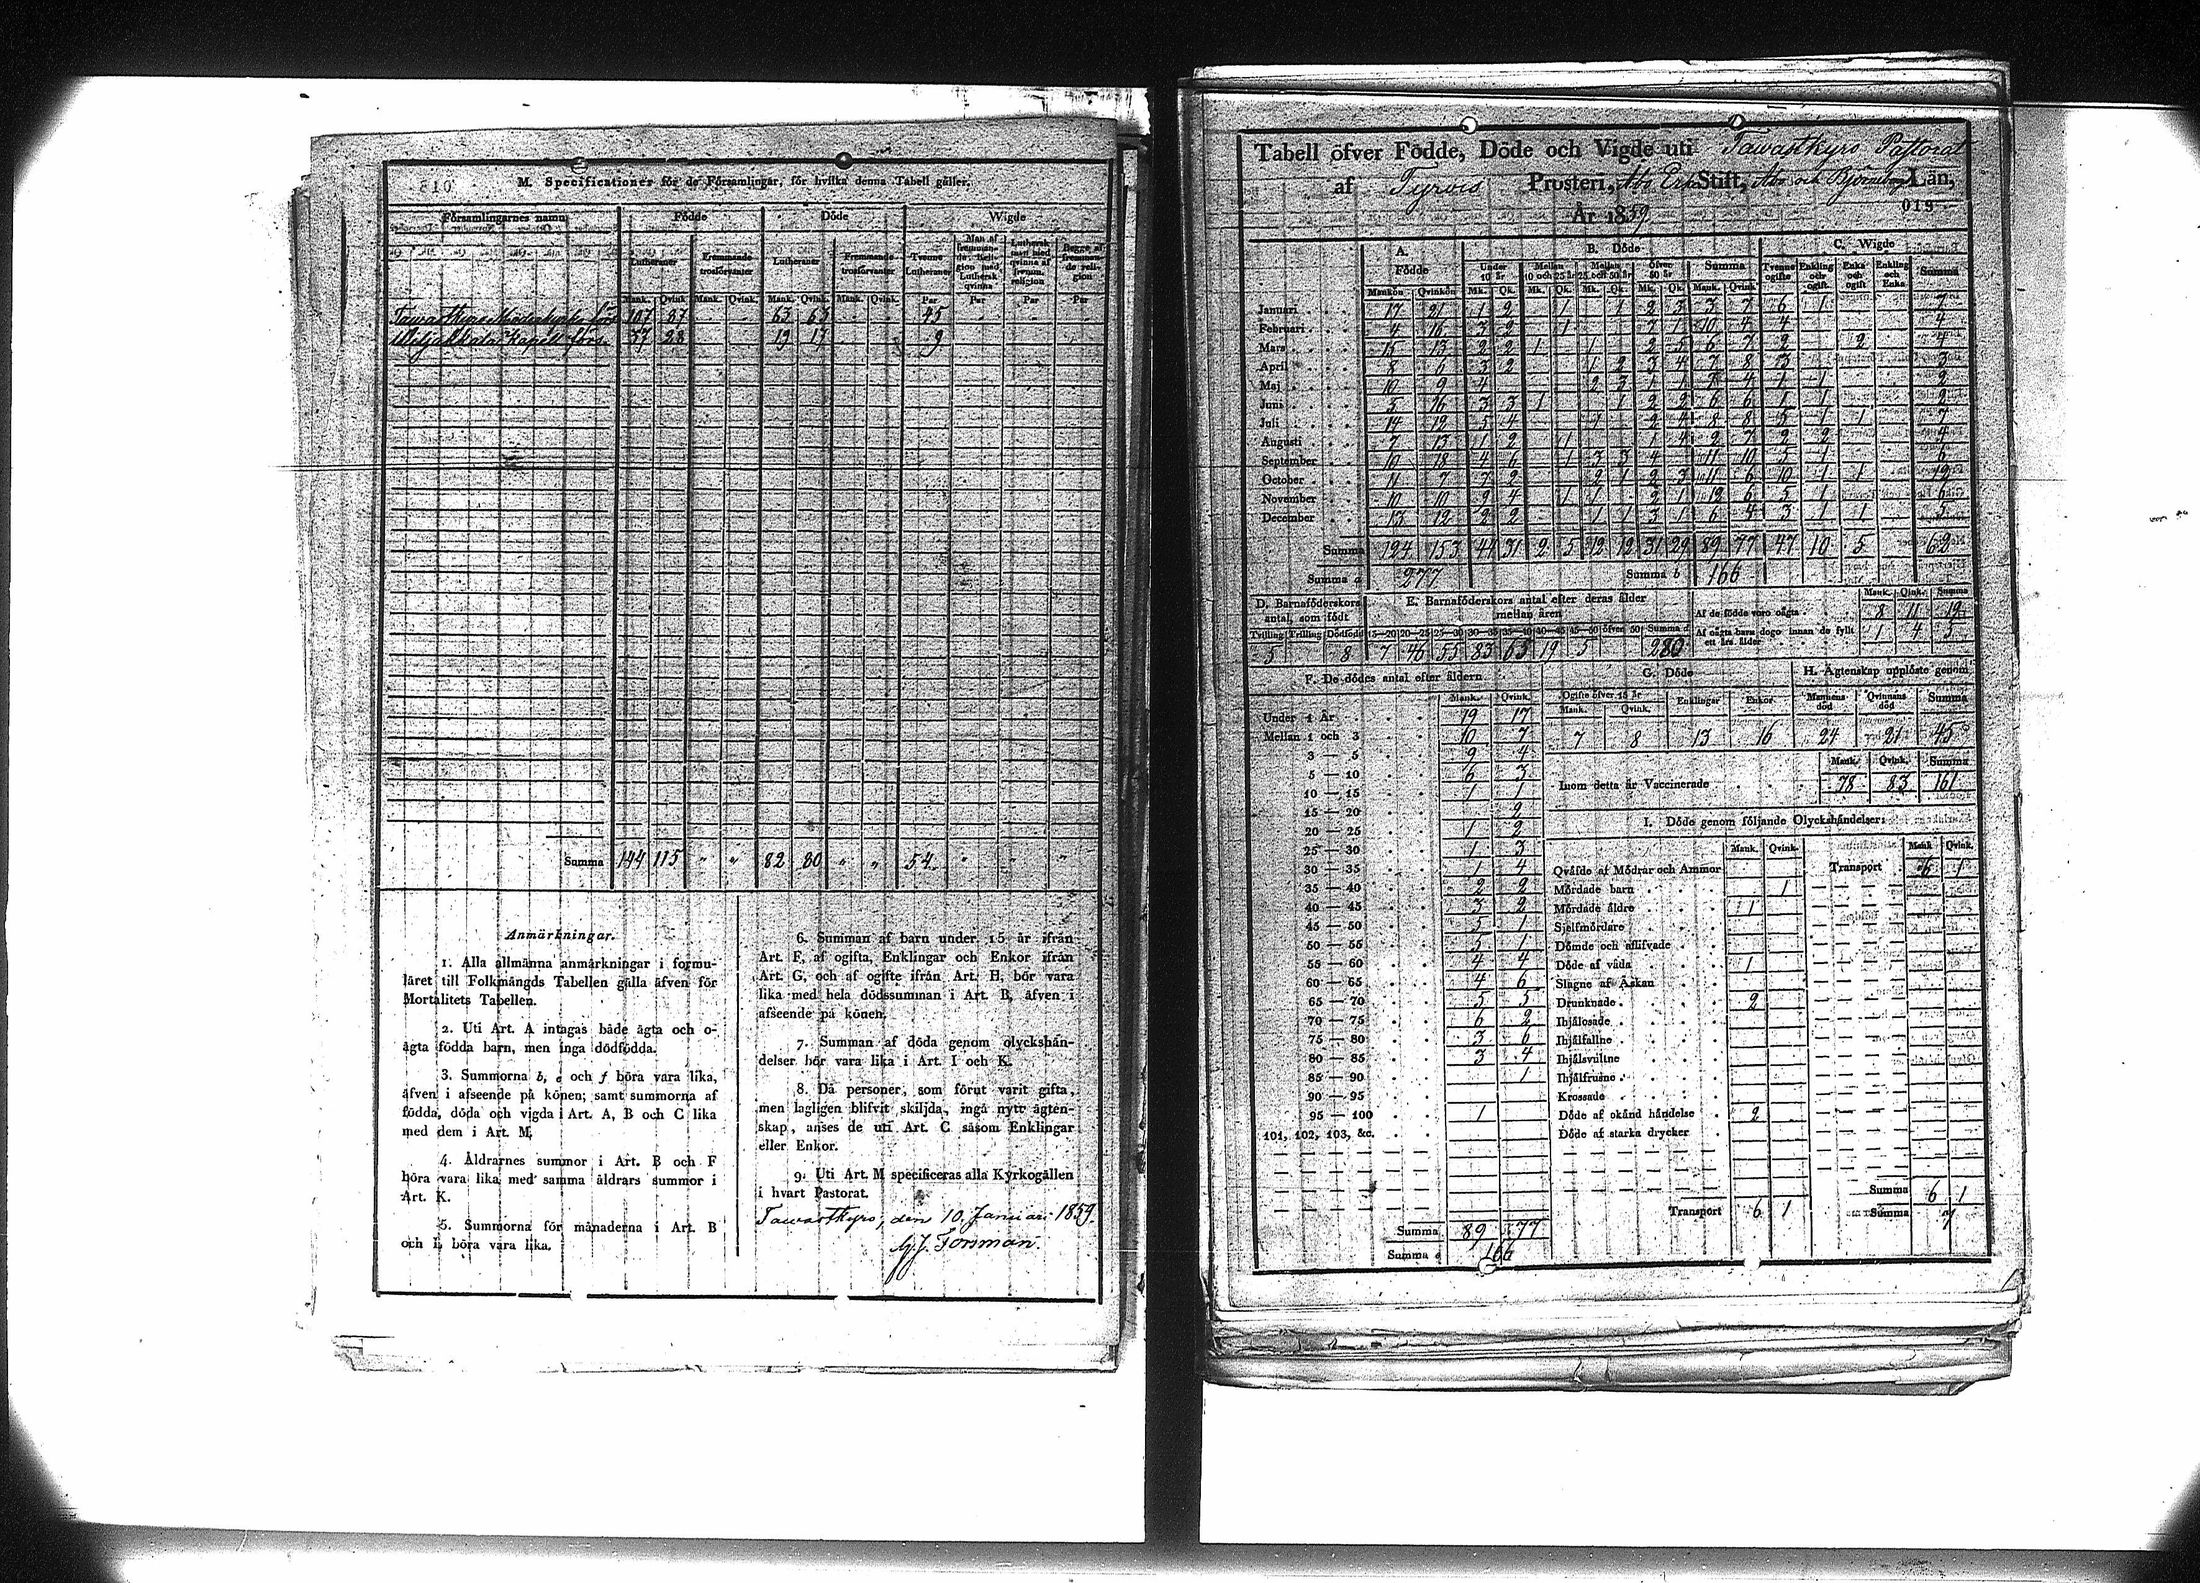 M. Specificationer för de Församlingar, för hvilka denna Tabell gäller.
Församlingarnes namn. Födde Döde Wigde
Lutheraner Fremmande trosförvanter Lutheraner Fremmande trosförvanter Tvenne Lutheraner Man af fremmande Religion med Luthersk qvinna Luthersk man med qvinna af fremm. religion Begge af fremmande religion
Mank. Qvink. Mank. Qvink. Mank. Qvink. Mank. Qvink. Par Par Par Par
Tawastkyro Moderkyrko förs 107 87 63 63 45
Wiljakkala Kapell förs. 37 28 19 17 9
Summa 144 115 " " 82 80 " " 54 " " "
Anmärkningar.
1. Alla allmänna anmärkningar i formu-
läret till Folkmängds Tabellen gälla äfven för
Mortalitets Tabellen.
2. Uti Art. A intagas både ägta och o-
ägta födda barn, men inga dödfödda.
3. Summorna b, e och f böra vara lika,
äfven i afseende på könen; samt summorna af
födda, döda och vigda i Art. A, B och C lika
med dem i Art. M.
4. Åldrarnes summor i Art. B och F
böra vara lika med samma åldrars summor i
Art. K.
5. Summorna för månaderna i Art. B
och L böra vara lika.
6. Summan af barn under 15 år ifrån
Art. F, af ogifta, Enklingar och Enkor ifrån
Art. G, och af ogifte ifrån Art. H, bör vara
lika med hela dödssumman i Art. B, äfven i
afseende på könen.
7. Summan af döda genom olyckshän-
delser bör vara lika i Art. I och K.
8. Då personer, som förut varit gifta,
men lagligen blifvit skiljda, ingå nytt ägten-
skap, anses de uti Art. C såsom Enklingar
eller Enkor.
9. Uti Art. M specificeras alla Kyrkogällen
i hvart Pastorat.
Tawastkyro, den 10. Januari 1859.
G.J. Forsman.
Tabell öfver Födde, Döde och Vigde uti Tawastkyro Pastorat
af Tyrvis Prosteri, Åbo Erke Stift, Åbo och Björneborgs Län,
År 1859
019
A. Födde B. Döde C. Wigde
Under 10 år Mellan 10 och 25 år Mellan 25 och 50 år Öfver 50 år Summa Tvenne ogifte Enkling och ogift Enka och ogift Enkling och Enka Summa
Mankön Qvinkön Mk. Qk. Mk. Qk. Mk. Qk. Mk. Qk. Mank. Qvink
Januari 17 21 1 2 1 1 2 3 3 7 6 1 7
Februari 4 16 3 2 1 7 1 10 4 4 4
Mars 15 13 2 2 1 1 2 5 6 7 2 2 4
April 8 6 3 2 1 2 3 4 7 8 3 3
Maj 10 9 4 2 3 1 1 7 4 1 1 2
Juni 5 16 3 3 1 1 2 2 6 6 1 1 2
Juli 14 12 5 4 1 2 4 8 8 5 1 1 7
Augusti 7 13 1 2 1 1 4 2 7 2 2 4
September 10 18 4 6 1 3 3 4 11 10 5 1 6
October 11 7 7 2 2 1 2 3 11 6 10 1 1 12
November 10 10 9 4 1 1 2 1 12 6 5 1 6
December 13 12 2 2 1 1 3 1 6 4 3 1 1 5
Summa 124 153 41 31 2 5 12 12 31 29 89 77 47 10 5 62
Summa a 277 Summa b 166
D. Barnaföderskors antal, som födt
E. Barnaföderskors antal efter deras ålder mellan åren
Tvilling Trilling Dödfödd 15—20 20—25 25—30 30—35 35—40 40—45 45—50 öfver 50 Summa d
5 8 7 46 55 83 65 19 5 280
Mank. Qink. Summa
Af de födde voro oägta 8 11 19
Af oägta barn dogo innan de fyllt ett års ålder 1 4 5
F. De dödes antal efter åldern
Mank. Qvink.
Under 1 År 19 17
Mellan 1 och 3 10 7
3 — 5 9 4
5 — 10 6 3
10 — 15 1 1
15 — 20 2
20 — 25 1 2
25 — 30 1 3
30 — 35 1 4
35 — 40 2 2
40 — 45 3 2
45 — 50 5 1
50 — 55 5 1
55 — 60 4 4
60 — 65 4 6
65 — 70 5 5
70 — 75 6 2
75 — 80 3 6
80 — 85 3 4
85 — 90 1
90 — 95
95 — 100 1
101, 102, 103, &c.
Summa 89 77
Summa e 166
G. Döde
Ogifte öfver 15 år Enklingar Enkor
Mank. Qvink.
7 8 13 16
H. Ägtenskap upplöste genom
Mannens död Qvinnans död Summa
24 21 45
Mank. Qvink. Summa
Inom detta år Vaccinerade 78 83 161
I. Döde genom följande Olyckshändelser:
Mank. Qvink. Mank Qvink.
Qväfde af Mödrar och Ammor Transport 6 1
Mördade barn 1
Mördade äldre 1
Sjelfmördare
Dömde och aflifvade
Döde af våda 1
Slagne af Åskan
Drunknade 2
Ihjälosade
Ihjälfallne
Ihjälsvultne
Ihjälfrusne
Krossade
Döde af okänd händelse 2
Döde af starka drycker
Transport 6 1
Summa 6 1
Summa 7